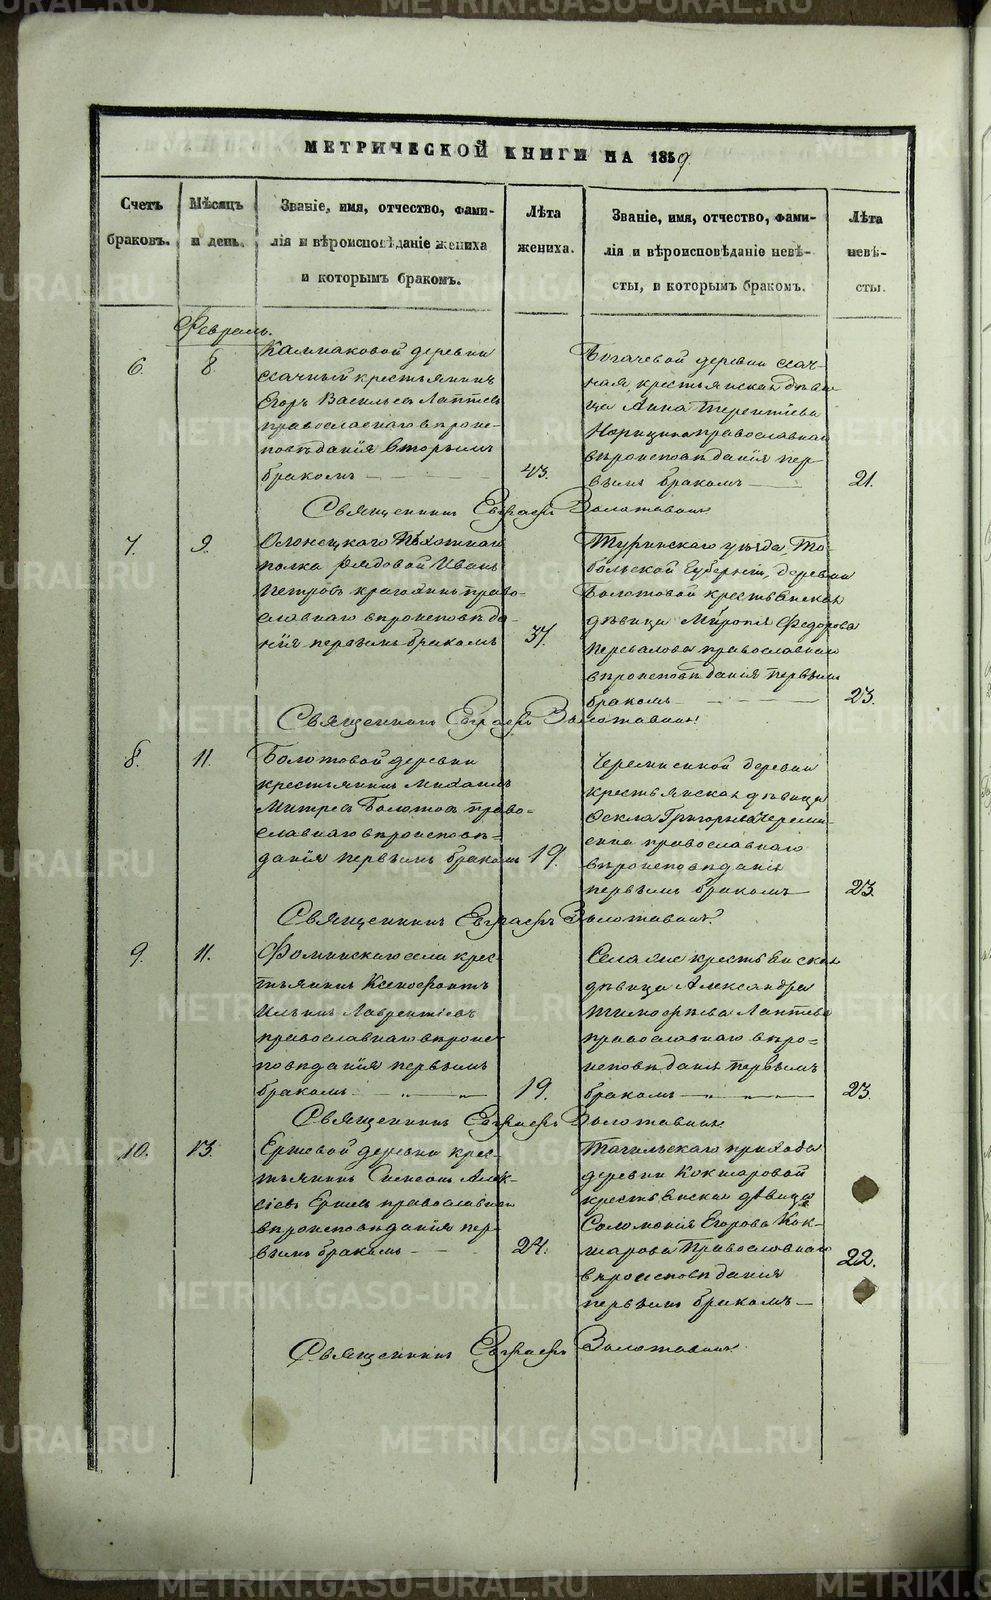 МЕТРИЧЕСКОЙ КНИГИ НА 1859.
Счетъ
браковъ.
Мѣсяцъ
и день.
Званіе, имя, отчество, фами-
лія и вѣроисповѣданіе жениха
и которымъ бракомъ.
Лѣта
жениха.
Званіе, имя, отчество, фами-
лія и вѣроисповѣданіе невѣ-
сты, и которымъ бракомъ.
Лѣта
невѣ-
сты.
Февраль.
6.
8
деревни
крестьянинъ
Егоръ Васильевъ Лаптевъ
православнаго вѣроис-
повѣданія вторымъ
бракомъ
43.
Богачевой деревни
крестьянская дѣви-
ца Анна Терентьева
православнаго
вѣроисповѣданія пер-
вымъ бракомъ
21.
Священникъ Евграфъ
7.
9.
Олонецкаго Пѣхотнаго
полка рядовой Иванъ
Петровъ право-
славнаго вѣроисповѣда-
нія первымъ бракомъ
37.
Туринскаго уѣзда То-
больской Губерніи, деревни
Болотовой крестьянская
дѣвица Миропія Федорова
Перевалова православнаго
вѣроисповѣданія первымъ
бракомъ
23.
Священникъ Евграфъ
8.
11.
Болотовой деревни
крестьянинъ Михаилъ
Митревъ Болотовъ право-
славнаго вѣроисповѣ-
данія первымъ бракомъ
19.
Черемисиной деревни
крестьянская дѣвица
Фекла Григорьева Череми-
сина православнаго
вѣроисповѣданія
первымъ бракомъ
23.
Священникъ Евграфъ
9.
11.
Фоминскаго села крес-
тьянинъ Ксенофонтъ
Ильинъ Лаврентіевъ
православнаго вѣроис-
повѣданія первымъ
бракомъ
19.
Села крестьянская
дѣвица Александра
Тимофеева Лаптева
православнаго вѣро-
исповѣданія первымъ
бракомъ
23.
Священникъ Евграфъ
10.
13.
Ершевой деревни крес-
тьянинъ Алек-
сіевъ Ершевъ православнаго
вѣроисповѣданія пер-
вымъ бракомъ
24.
Тагильскаго прихода
деревни Кокшаровой
крестьянская дѣвица
Соломонія Егорова Кок-
шарова Православнаго
вѣроисповѣданія
первымъ бракомъ
22.
Священникъ Евграфъ
METRIKI.GASO-URAL.RU